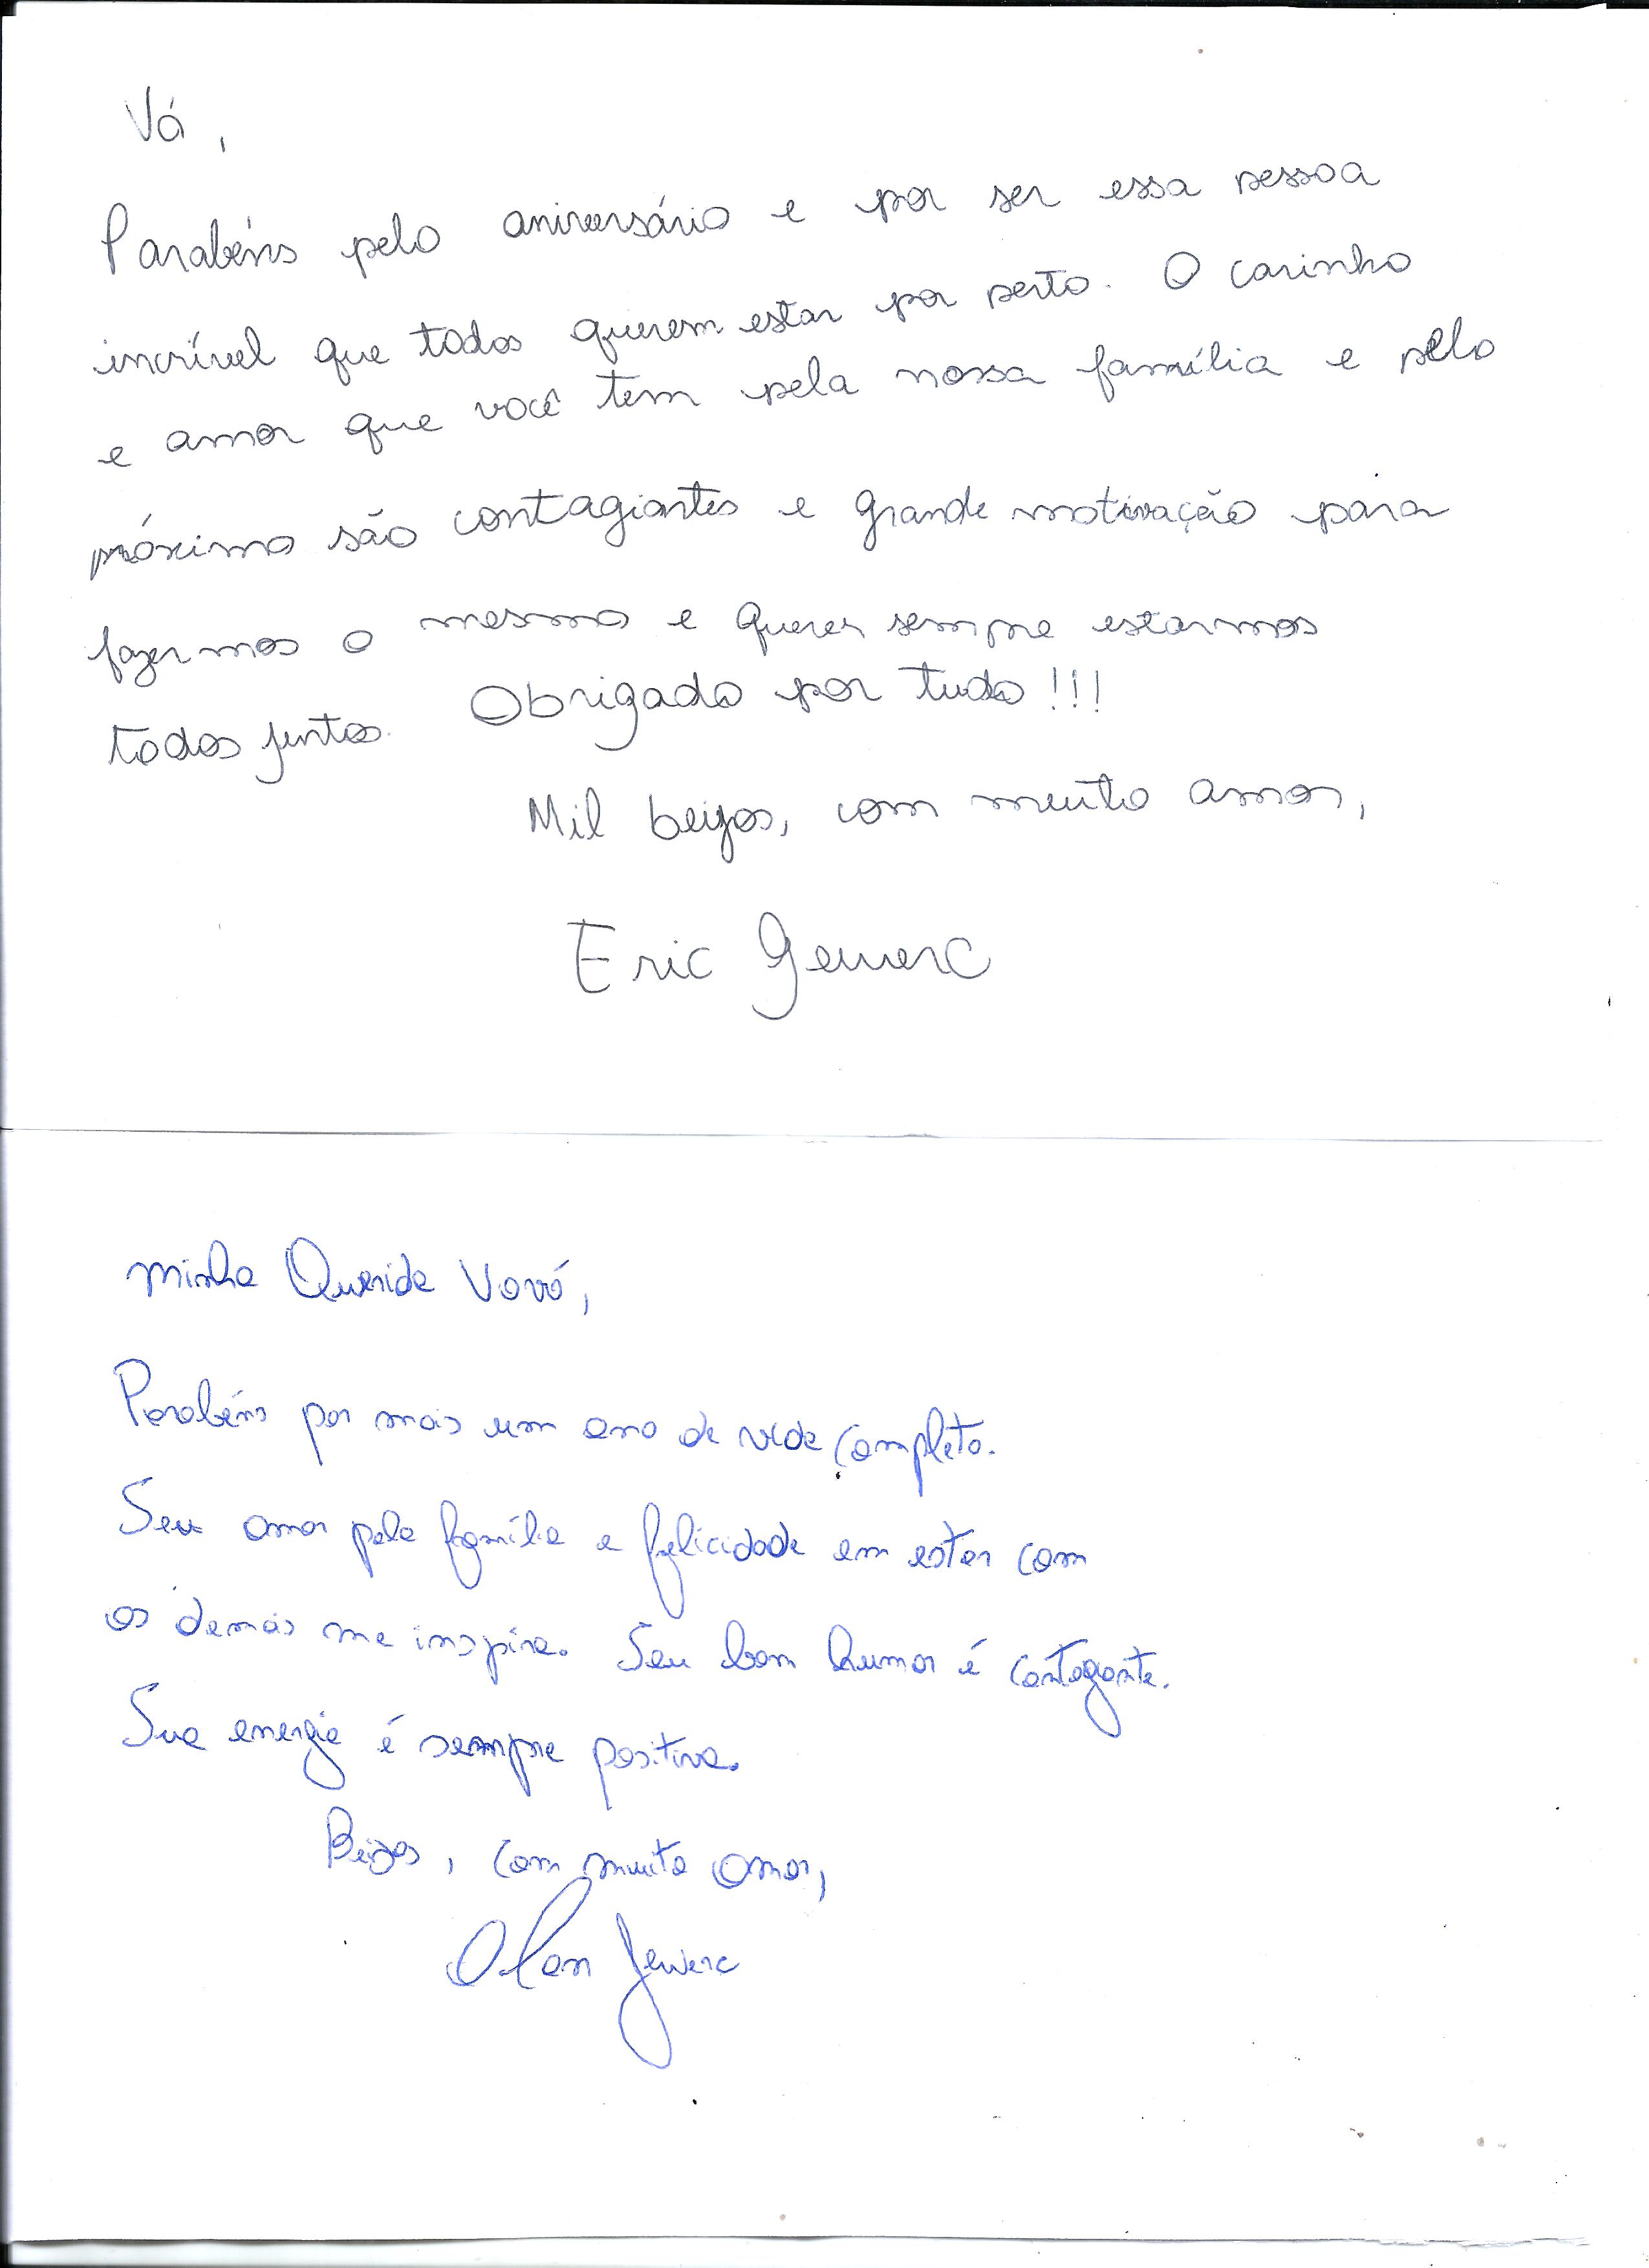 Vó,
Parabéns pelo aniversário e por ser essa pessoa
incrível que todos querem estar por perto. O carinho
e amor que você tem pela nossa família e pelo
próximo são contagiantes e grande motivação para
fazermos o mesmo e querer sempre estarmos
todos juntos. Obrigado por tudo!!!
Mil beijos, com muito amor,
Eric Gewerc
Minha Querida Vovó,
Parabéns por mais um ano de vida completo.
Seu amor pela família e felicidade em estar com
os demais me inspira. Seu bom humor é contagiante.
Sua energia é sempre positiva.
Beijos, com muito amor,
Alan Gewerc